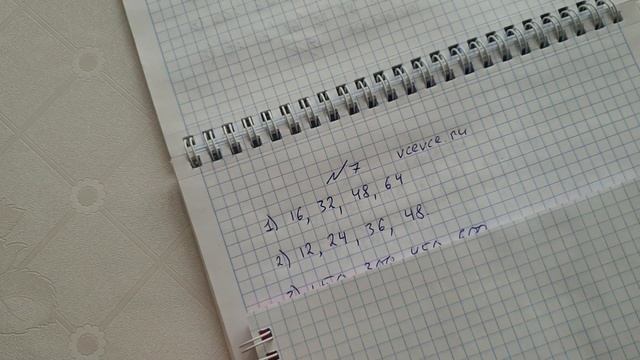 №7 vcevce ru
1) 16, 32, 48, 64
2) 12, 24, 36, 48